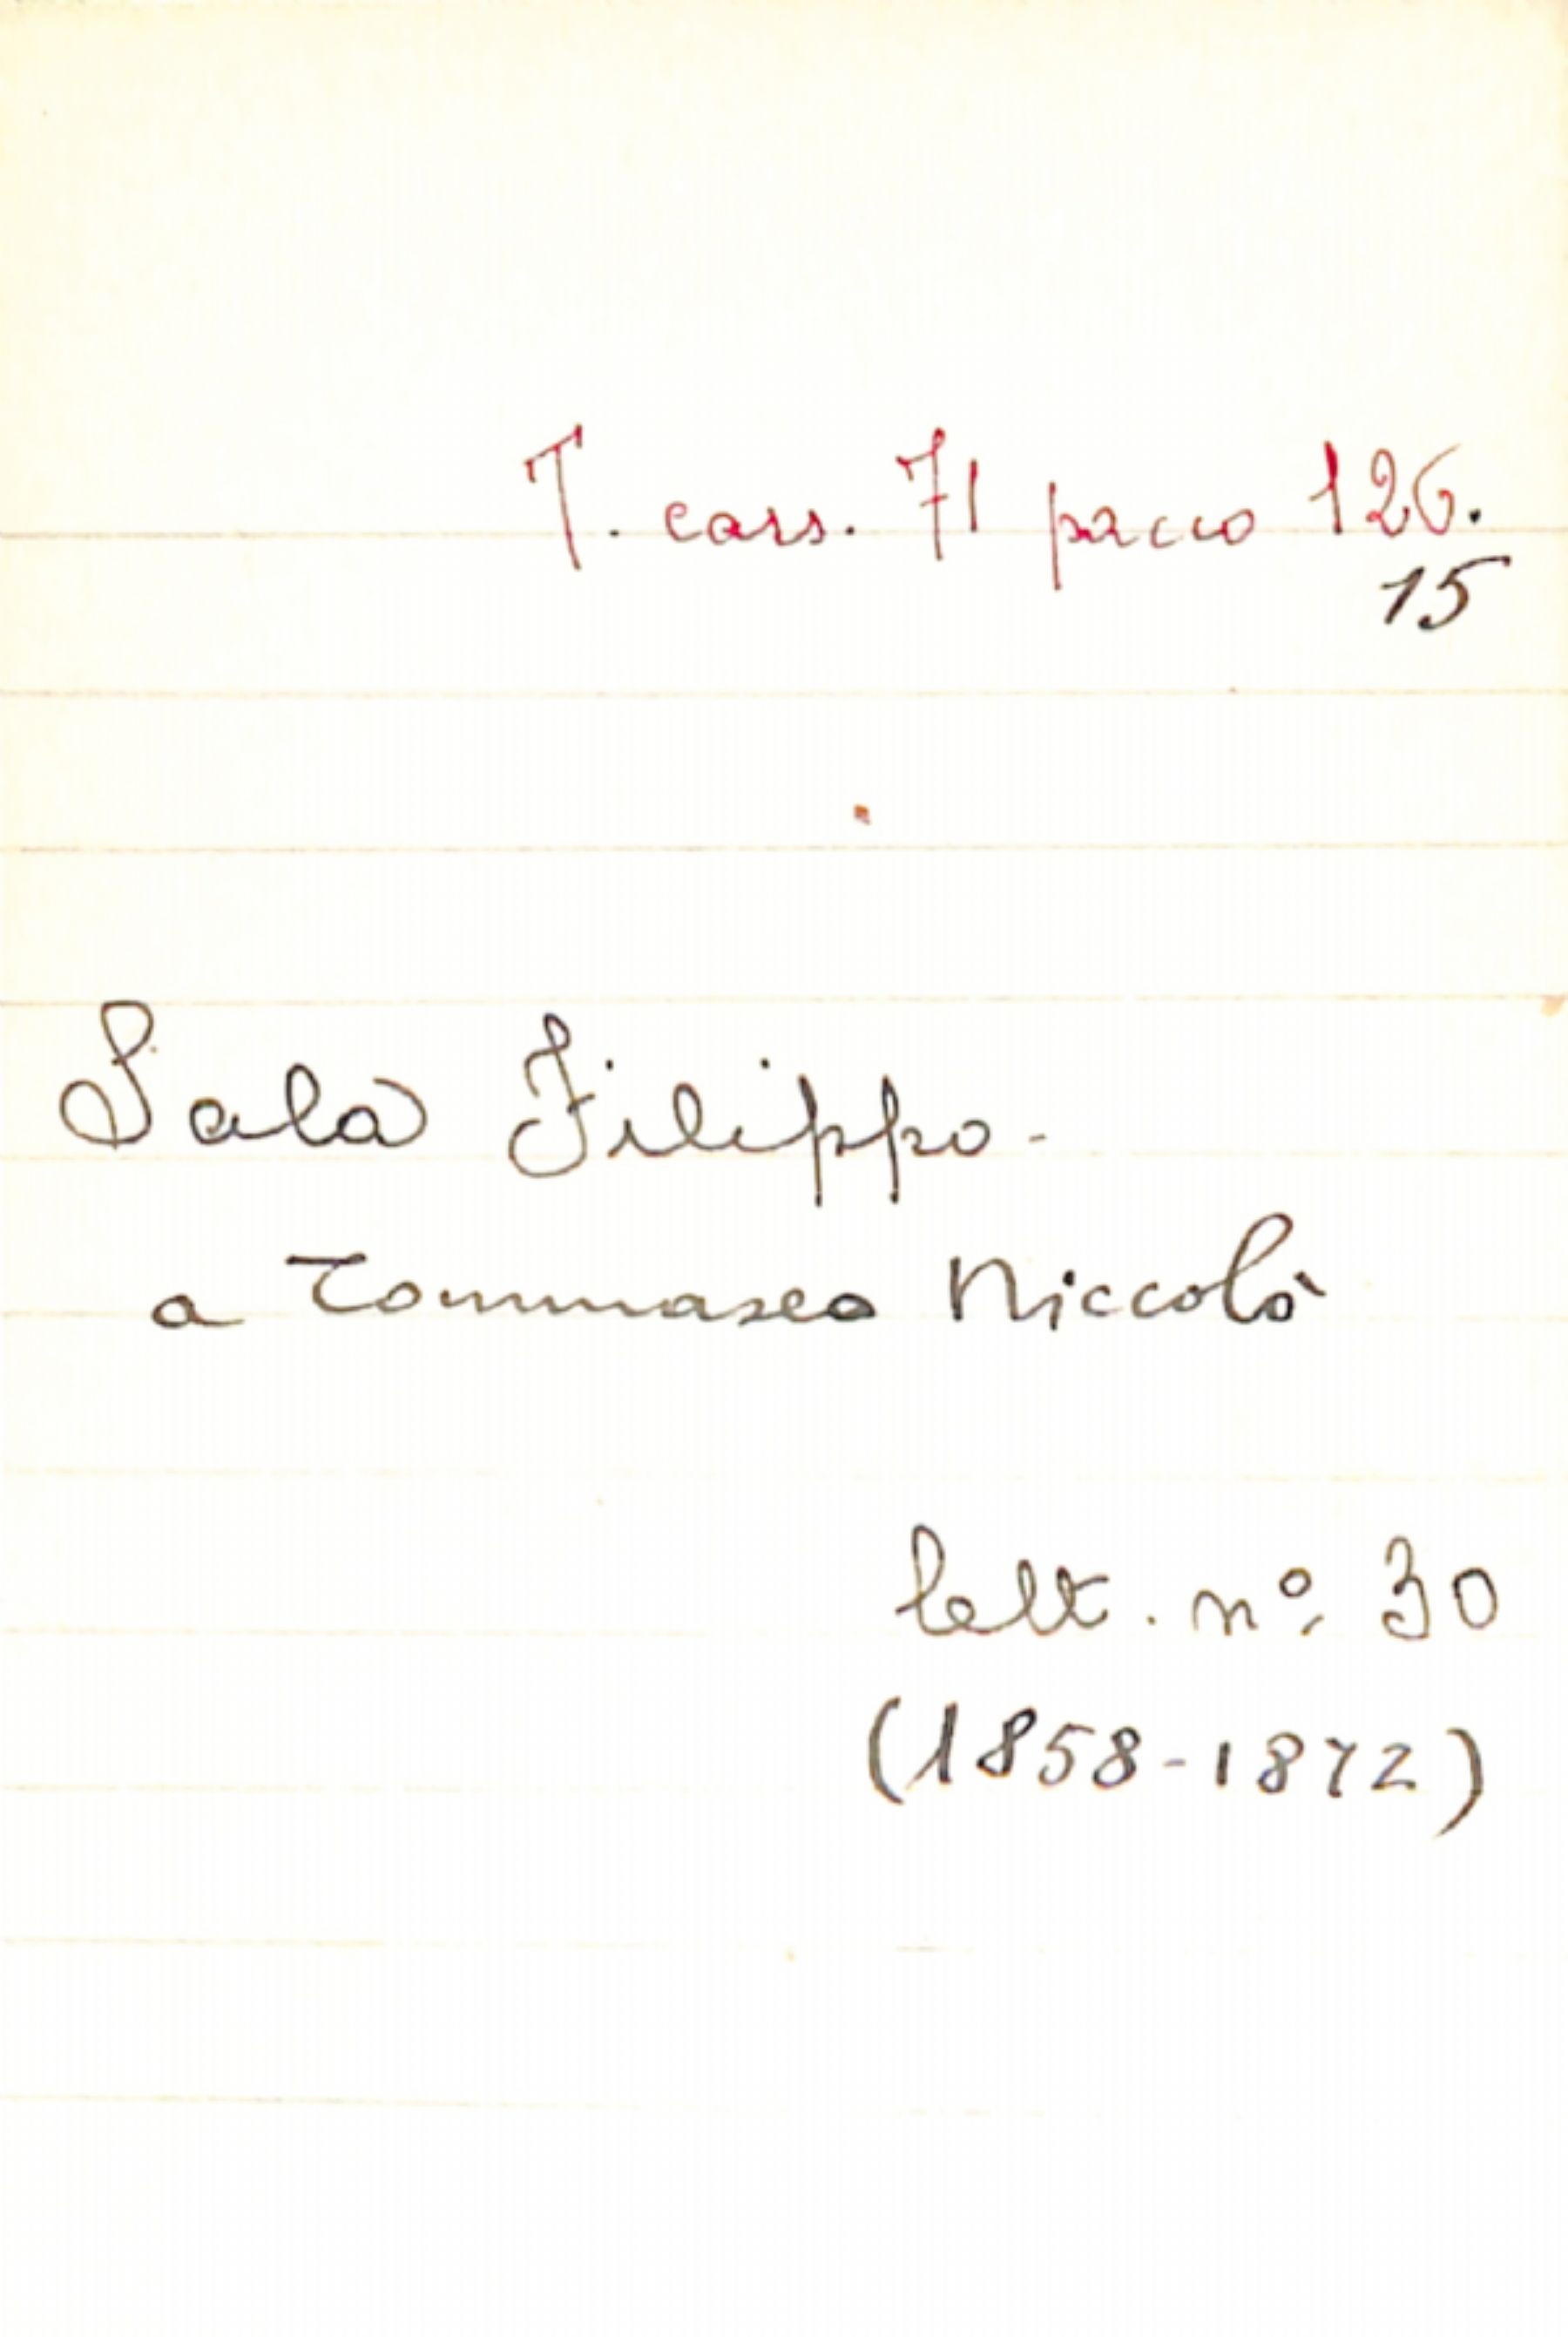 T. cass. 71 pacco 126.
15
Sala Filippo -
a Tommaseo Niccolò
lett. nº. 30
(1858-1872)